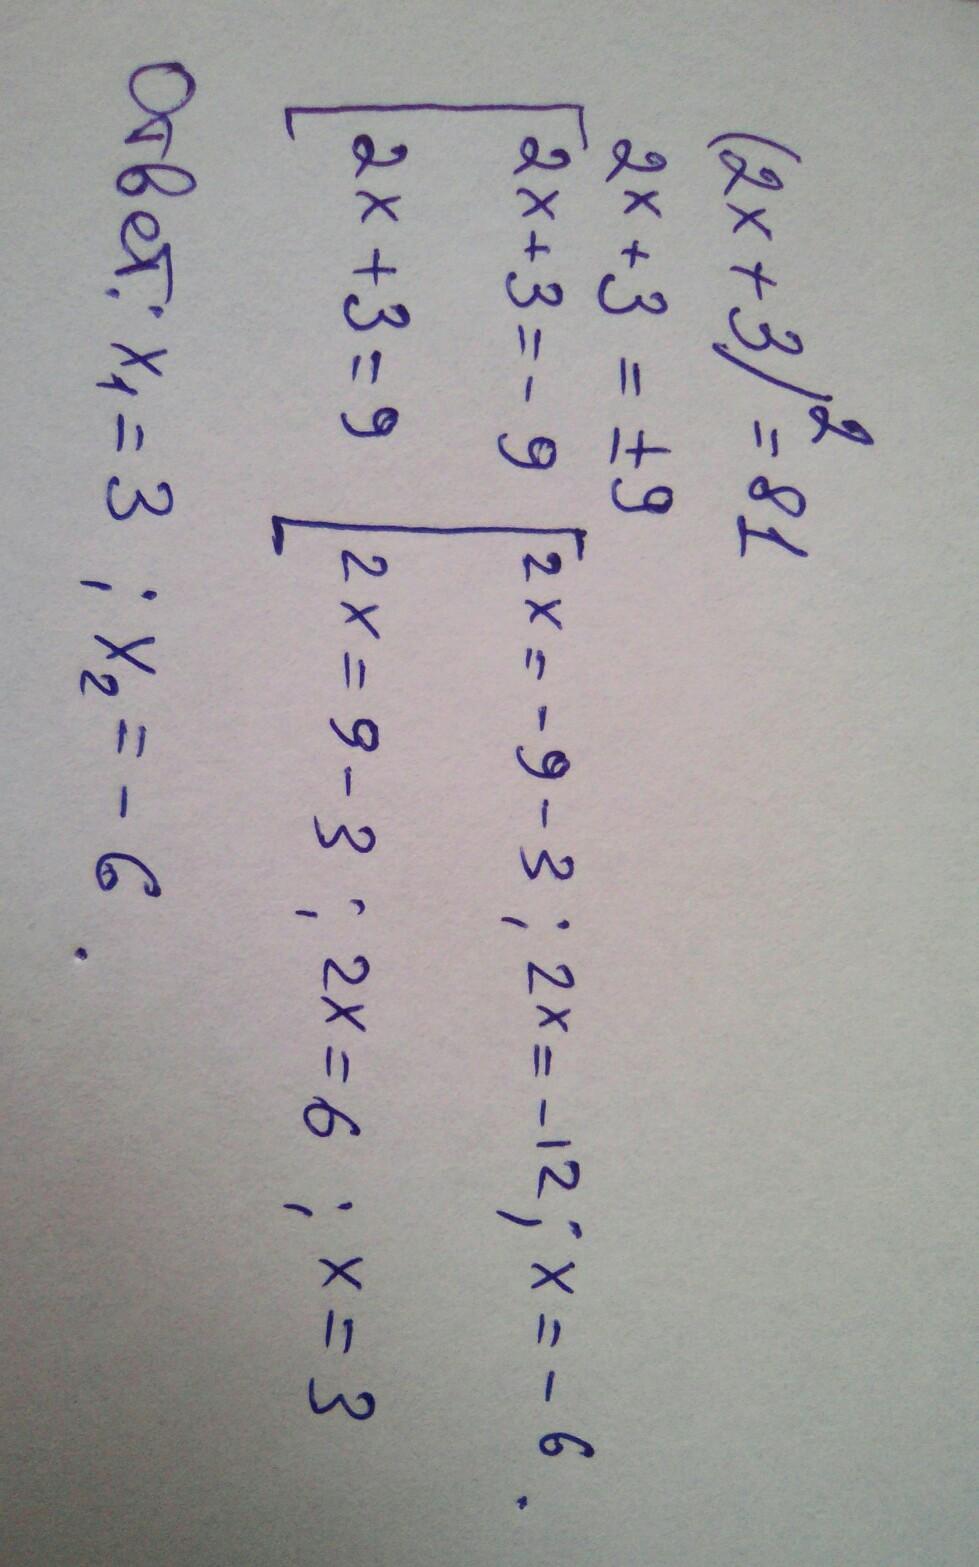 (2x+3)² = 81
2x+3 = ±9
[2x+3=-9 [2x=-9-3; 2x=-12; x=-6.
2x+3=9 2x=9-3; 2x=6; x=3
Ответ: x₁=3; x₂=-6.